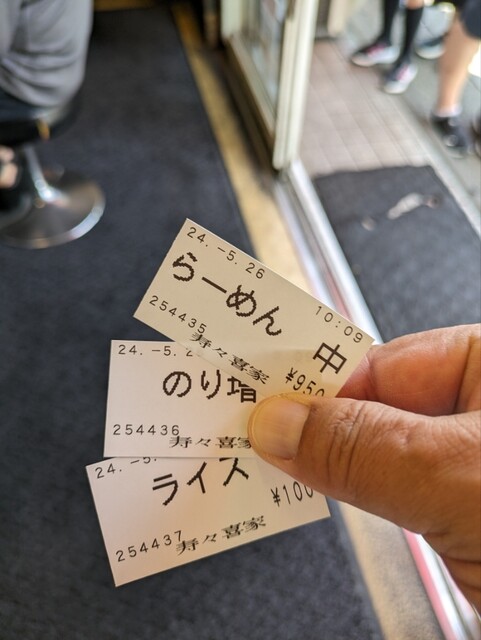 24.-5.26
10:09
らーめん 中
254435
寿々喜家
¥950
24.-5.2
のり増
254436
寿々喜家
24.-5.
ライス
¥100
254437
寿々喜家